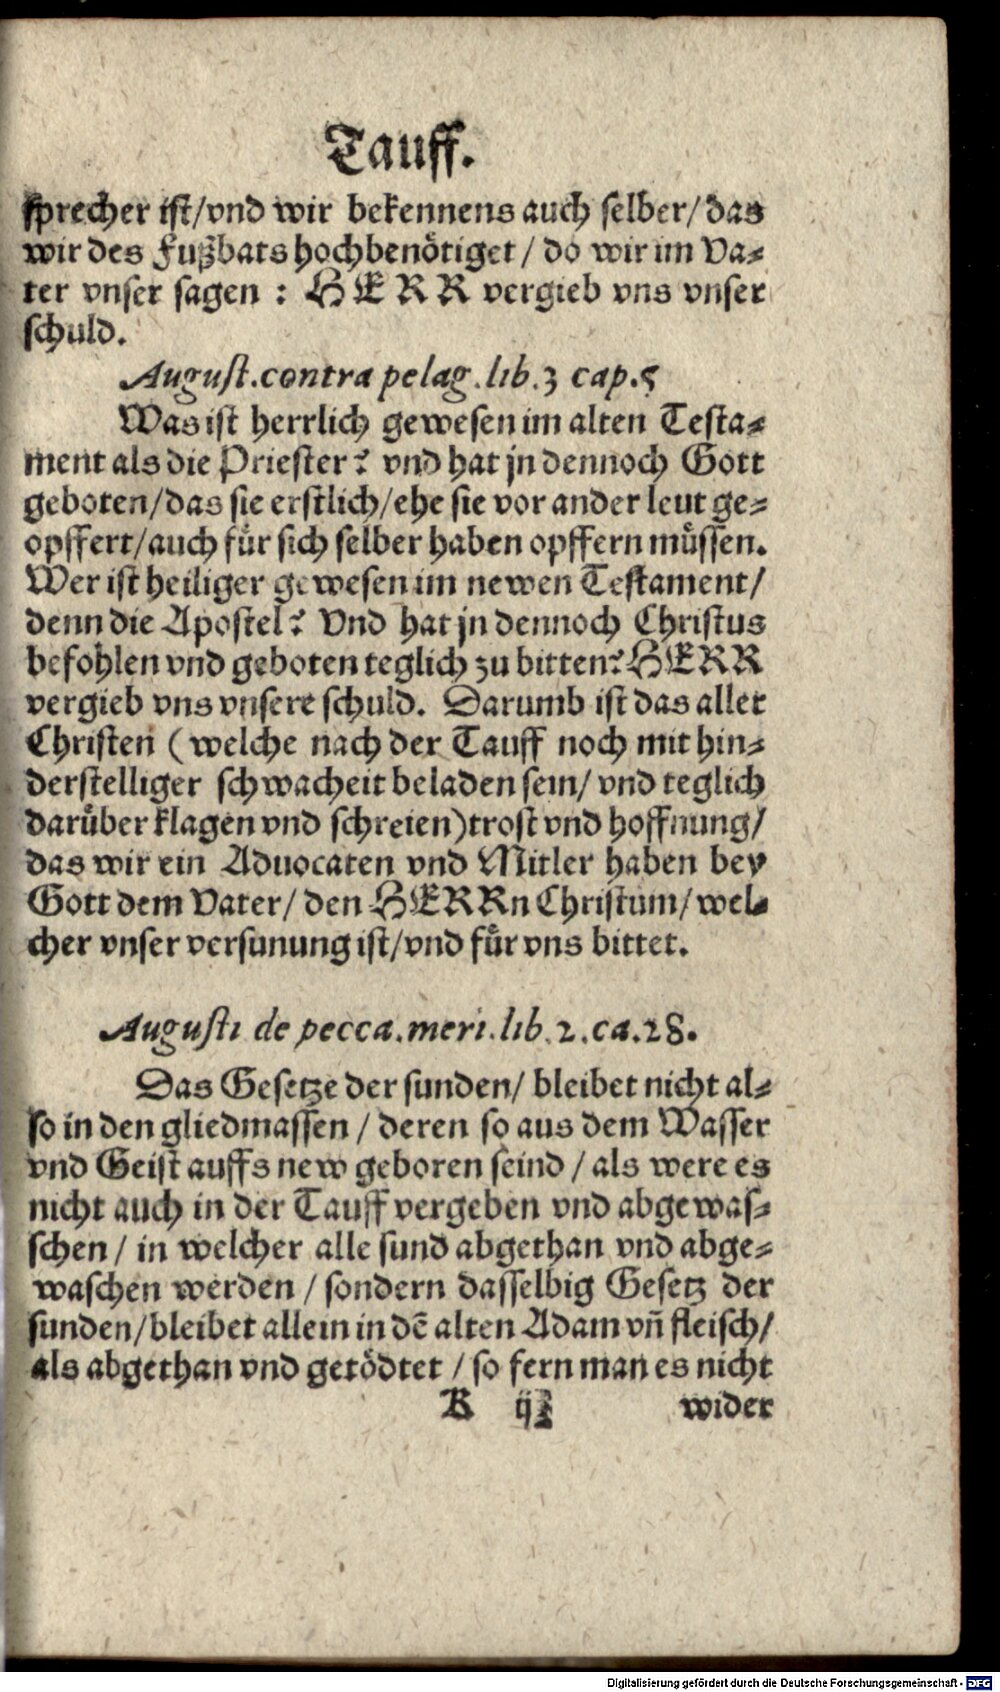 Tauff.
sprecher ist/vnd wir bekennens auch selber/das
wir des Fußbats hochbenötiget / do wir im Va-
ter vnser sagen : HERR vergieb vns vnser
schuld.
August.contra pelag.lib.3 cap.5
Was ist herrlich gewesen im alten Testa-
ment als die Priester? vnd hat jn dennoch Gott
geboten/das sie erstlich/ehe sie vor ander leut ge-
opffert/auch für sich selber haben opffern müssen.
Wer ist heiliger gewesen im newen Testament/
denn die Apostel? Vnd hat jn dennoch Christus
befohlen vnd geboten teglich zu bitten?HERR
vergieb vns vnsere schuld. Darumb ist das aller
Christen (welche nach der Tauff noch mit hin-
derstelliger schwacheit beladen sein/ vnd teglich
darüber klagen vnd schreien)trost vnd hoffnung/
das wir ein Aduocaten vnd Mitler haben bey
Gott dem Vater/ den HERRn Christum/ wel-
cher vnser versunung ist/vnd für vns bittet.
Augusti de pecca.meri.lib.2.ca.28.
Das Gesetze der sunden/ bleibet nicht al-
so in den gliedmassen / deren so aus dem Wasser
vnd Geist auffs new geboren seind / als were es
nicht auch in der Tauff vergeben vnd abgewas-
schen / in welcher alle sund abgethan vnd abge-
waschen werden / sondern dasselbig Gesetz der
sunden/bleibet allein in dē alten Adam vn̄ fleisch/
als abgethan vnd getödtet / so fern man es nicht
B ij wider
Digitalisierung gefördert durch die Deutsche Forschungsgemeinschaft - DFG